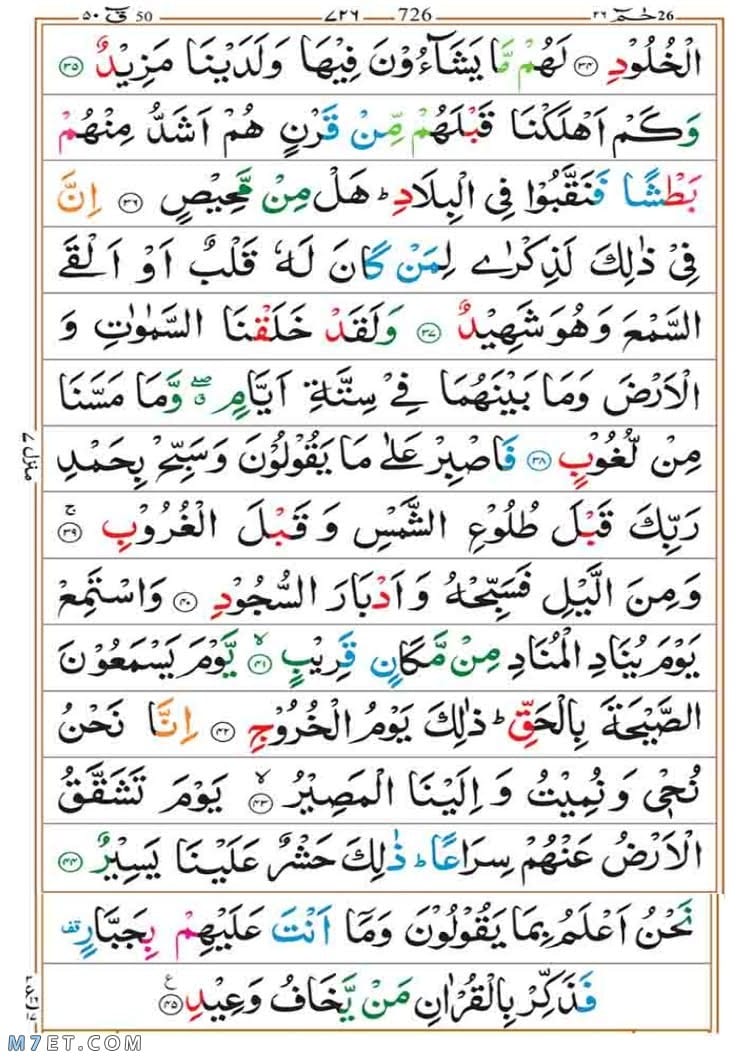 حٰمٓ 26 ۲۶ 726 ۷۲۶ قٓ 50 ۵۰
الْخُلُوْدِ ﴿۳۴﴾ لَهُمْ مَّا يَشَآءُوْنَ فِيْهَا وَلَدَيْنَا مَزِيْدٌ ﴿۳۵﴾
وَكَمْ اَهْلَكْنَا قَبْلَهُمْ مِّنْ قَرْنٍ هُمْ اَشَدُّ مِنْهُمْ
بَطْشًا فَنَقَّبُوْا فِي الْبِلَادِ ؕ هَلْ مِنْ مَّحِيْصٍ ﴿۳۶﴾ اِنَّ
فِيْ ذٰلِكَ لَذِكْرٰى لِمَنْ كَانَ لَهٗ قَلْبٌ اَوْ اَلْقَى
السَّمْعَ وَهُوَ شَهِيْدٌ ﴿۳۷﴾ وَلَقَدْ خَلَقْنَا السَّمٰوٰتِ وَ
الْاَرْضَ وَمَا بَيْنَهُمَا فِيْ سِتَّةِ اَيَّامٍ ۖ ق وَّمَا مَسَّنَا
مِنْ لُّغُوْبٍ ﴿۳۸﴾ فَاصْبِرْ عَلٰى مَا يَقُوْلُوْنَ وَسَبِّحْ بِحَمْدِ
رَبِّكَ قَبْلَ طُلُوْعِ الشَّمْسِ وَقَبْلَ الْغُرُوْبِ ۚ ﴿۳۹﴾
وَمِنَ الَّيْلِ فَسَبِّحْهُ وَاَدْبَارَ السُّجُوْدِ ﴿۴۰﴾ وَاسْتَمِعْ
يَوْمَ يُنَادِ الْمُنَادِ مِنْ مَّكَانٍ قَرِيْبٍ ۙ ﴿۴۱﴾ يَّوْمَ يَسْمَعُوْنَ
الصَّيْحَةَ بِالْحَقِّ ؕ ذٰلِكَ يَوْمُ الْخُرُوْجِ ﴿۴۲﴾ اِنَّا نَحْنُ
نُحْيٖ وَنُمِيْتُ وَاِلَيْنَا الْمَصِيْرُ ۙ ﴿۴۳﴾ يَوْمَ تَشَقَّقُ
الْاَرْضُ عَنْهُمْ سِرَاعًا ؕ ذٰلِكَ حَشْرٌ عَلَيْنَا يَسِيْرٌ ﴿۴۴﴾
نَحْنُ اَعْلَمُ بِمَا يَقُوْلُوْنَ وَمَآ اَنْتَ عَلَيْهِمْ بِجَبَّارٍ قف
فَذَكِّرْ بِالْقُرْاٰنِ مَنْ يَّخَافُ وَعِيْدِ ﴿۴۵﴾ ع
منزل ۷
M7ET.COM